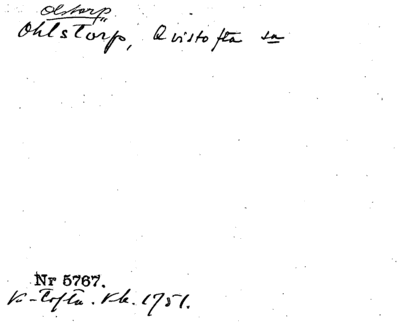 Olstorp
Ohlstorp, Qvistofta sn
Nr 5767.
K-tofta. Kb. 1751.